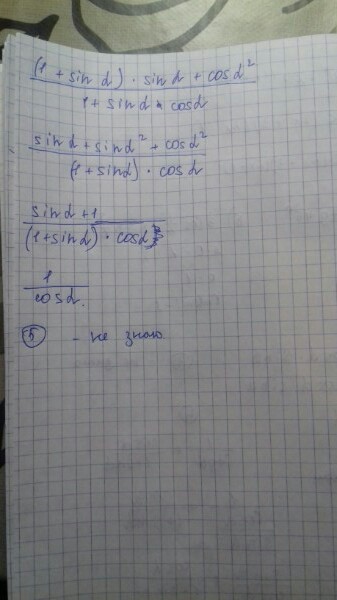 (1 + sin α) · sin α + cos α²
1 + sin α · cos α
sin α + sin α² + cos α²
(1 + sin α) · cos α
sin α + 1
(1 + sin α) · cos α
1
cos α.
5 - не знаю